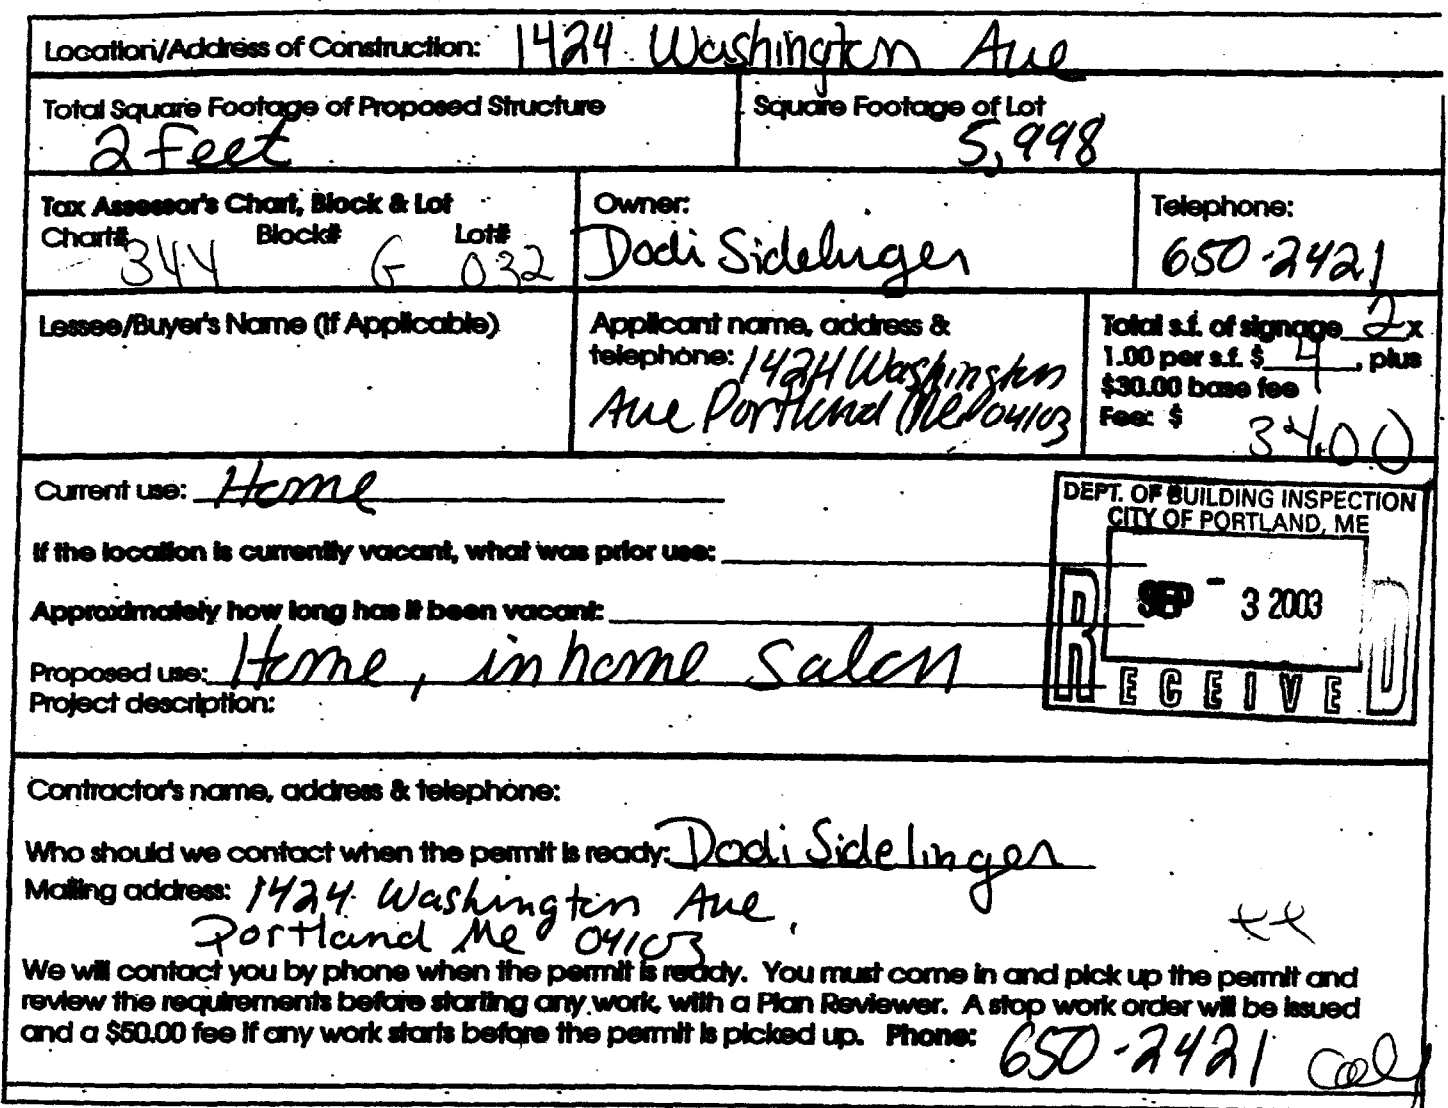 Location/Address of Construction: 1424 Washington Ave
Total Square Footage of Proposed Structure
2 Feet
Square Footage of Lot
5,998
Tax Assessor's Chart, Block & Lot
Chart# Block# Lot#
344 G 032
Owner:
Dodi Sidelinger
Telephone:
650-2421
Lessee/Buyer's Name (If Applicable)
Applicant name, address &
telephone: 1424 Washington
Ave Portland Me 04103
Total s.f. of signage 2 x
1.00 per s.f. $ 4, plus
$30.00 base fee
Fee: $ 34.00
Current use: Home
If the location is currently vacant, what was prior use:
Approximately how long has it been vacant:
Proposed use: Home, in home Salon
Project description:
DEPT. OF BUILDING INSPECTION
CITY OF PORTLAND, ME
SEP - 3 2003
RECEIVED
Contractor's name, address & telephone:
Who should we contact when the permit is ready: Dodi Sidelinger
Mailing address: 1424 Washington Ave,
Portland Me 04103
We will contact you by phone when the permit is ready. You must come in and pick up the permit and
review the requirements before starting any work, with a Plan Reviewer. A stop work order will be issued
and a $50.00 fee if any work starts before the permit is picked up. Phone: 650-2421